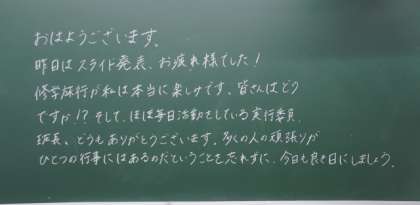 おはようございます。
昨日はスライド発表、お疲れ様でした！
修学旅行が私は本当に楽しみです。皆さんはどう
ですか!? そして、ほぼ毎日活動をしている実行委員、
班長、どうもありがとうございます。多くの人の頑張りが
ひとつの行事にはあるのだということを忘れずに、今日も良き日にしましょう。